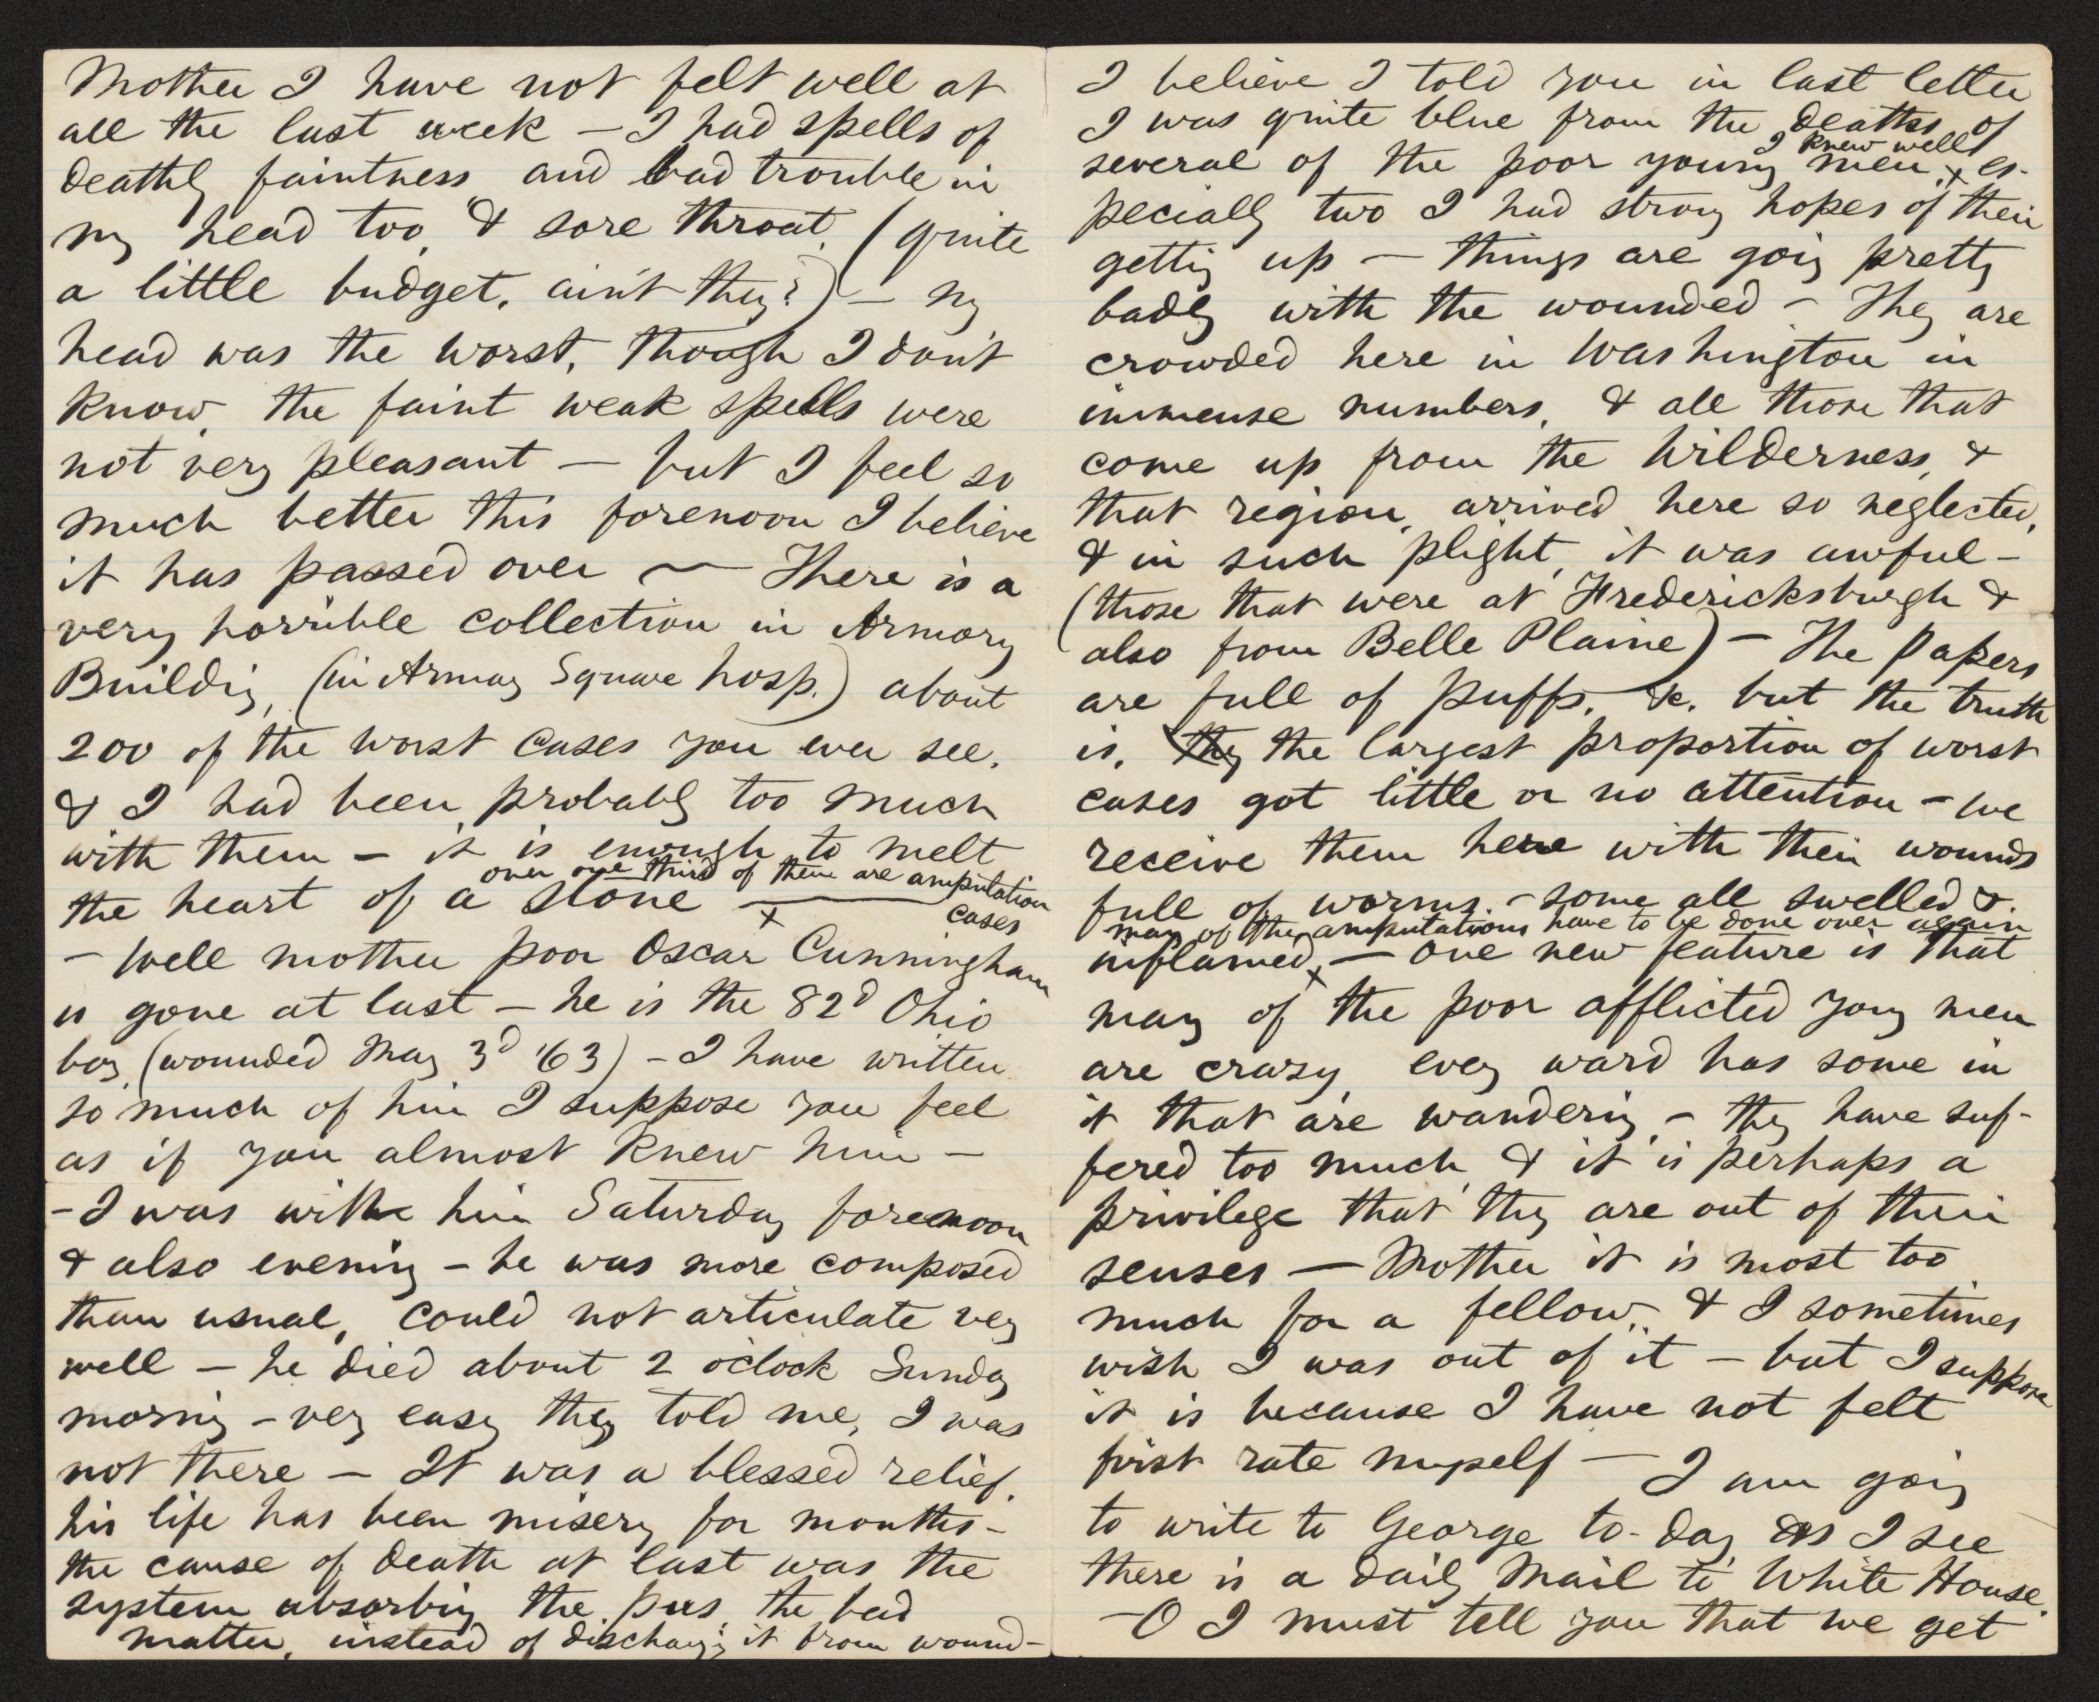 Mother I have not felt well at
all the last week — I had spells of
deathly faintness and bad trouble in
my head too, & sore throat, (quite
a little budget, ain't they?) — my
head was the worst, though I don't
know, the faint weak spells were
not very pleasant — but I feel so
much better this forenoon I believe
it has passed over — There is a
very horrible collection in Armory
Building, (in Armory Square hosp.) about
200 of the worst cases you ever see,
& I had been probably too much
with them — it is enough to melt
over one third of them are amputation
the heart of a stone
cases
— Well mother poor Oscar Cunningham
is gone at last — he is the 82d Ohio
boy, (wounded May 3d '63) — I have written
so much of him I suppose you feel
as if you almost knew him —
— I was with him Saturday forenoon
& also evening — he was more composed
than usual, could not articulate very
well — he died about 2 o'clock Sunday
morning — very easy they told me, I was
not there — It was a blessed relief,
his life has been misery for months —
the cause of death at last was the
system absorbing the pus, the bad
matter, instead of discharging it from wound —
I believe I told you in last letter
I was quite blue from the deaths of
I knew well
several of the poor young men, es-
pecially two I had strong hopes of their
getting up — things are going pretty
badly with the wounded — They are
crowded here in Washington in
immense numbers, & all those that
come up from the Wilderness, &
that region, arrived here so neglected,
& in such plight, it was awful —
(those that were at Fredericksburgh &
also from Belle Plaine) — The papers
are full of puffs, &c. but the truth
is, they the largest proportion of worst
cases got little or no attention — We
receive them here with their wounds
full of worms — some all swelled &
many of the amputations have to be done over again
inflamed, — One new feature is that
many of the poor afflicted young men
are crazy, every ward has some in
it that are wandering — they have suf-
fered too much, & it is perhaps a
privilege that they are out of their
senses — Mother it is most too
much for a fellow, & I sometimes
wish I was out of it — but I suppose
it is because I have not felt
first rate myself — I am going
to write to George to-day as I see
there is a daily mail to White House.
— O I must tell you that we get